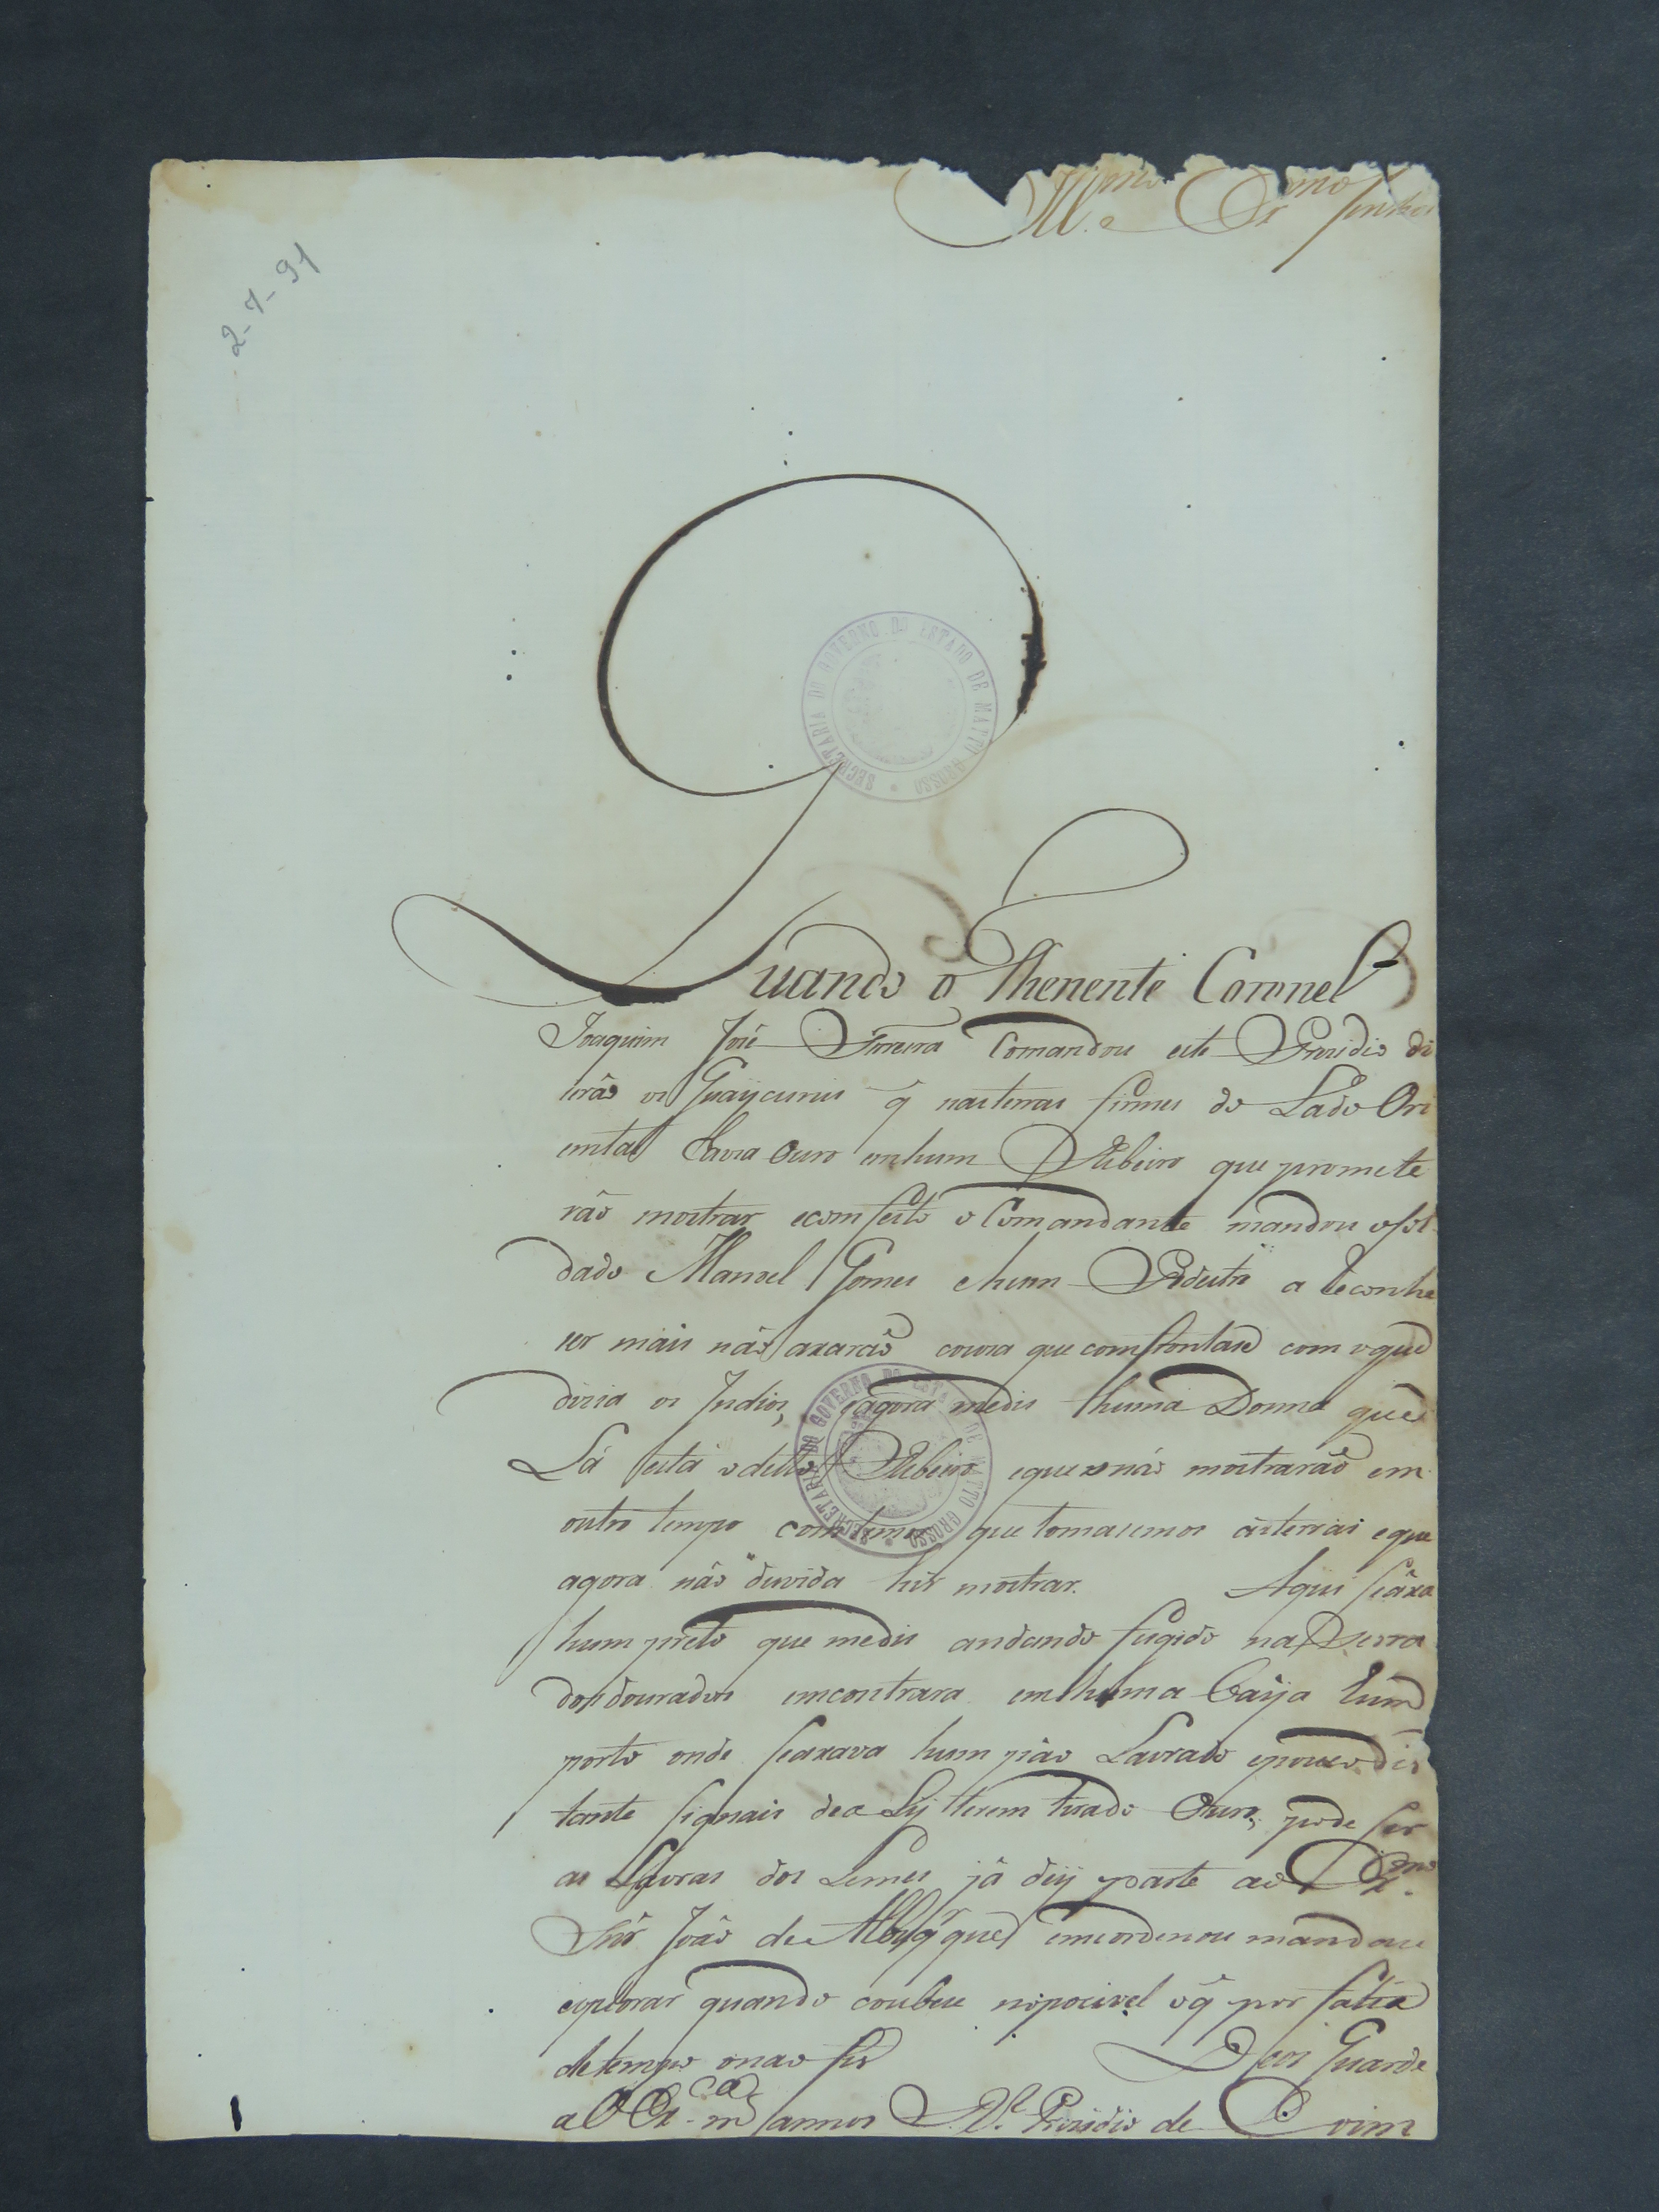 Ill.mo e Ex.mo Senhor
2-7-91
SECRETARIA DO GOVERNO DO ESTADO DE MATTO GROSSO
Quando o Thenente Coronel
Joaquim José Ferreira Comandou este Prezidio di
serão os Guaÿcurus q̃ nas terras firmes do Lado Ori
ental havia Ouro em hum Ribeiro que promete
rão mostrar e com feito o Comandante mandou o sol
dado Manoel Gomes e hum Pedestre a Reconhe
ser mais não axarão couza que comfrontase com o que
dizia os Indios, e agora me dis huma Donna que
Lá está o ditto Ribeiro e que o não mostrarão em
outro tempo com temor que tomasemos as terras e que
agora não duvida hir mostrar. Aqui se áxa
hum preto que me dis andando fugido na Serra
dos dourados emcontrara em huma Baÿa hum
porto onde se axava hum pão Lavrado e pouco dis
tante signais de a Lÿ terem tirado Ouro, pode ser
as Lavras dos Lemes já deÿ parte ao Ex.mo
Snr̃ João de Albuq̃rque eme ordenou mandace
explorar quando coubese no posivel o q̃ por falta
de tempo o nao fis Deos Guarde
a V Ex.ca m annos R.l Prezidio de Coim
SECRETARIA DO GOVERNO DO ESTADO DE MATTO GROSSO
1